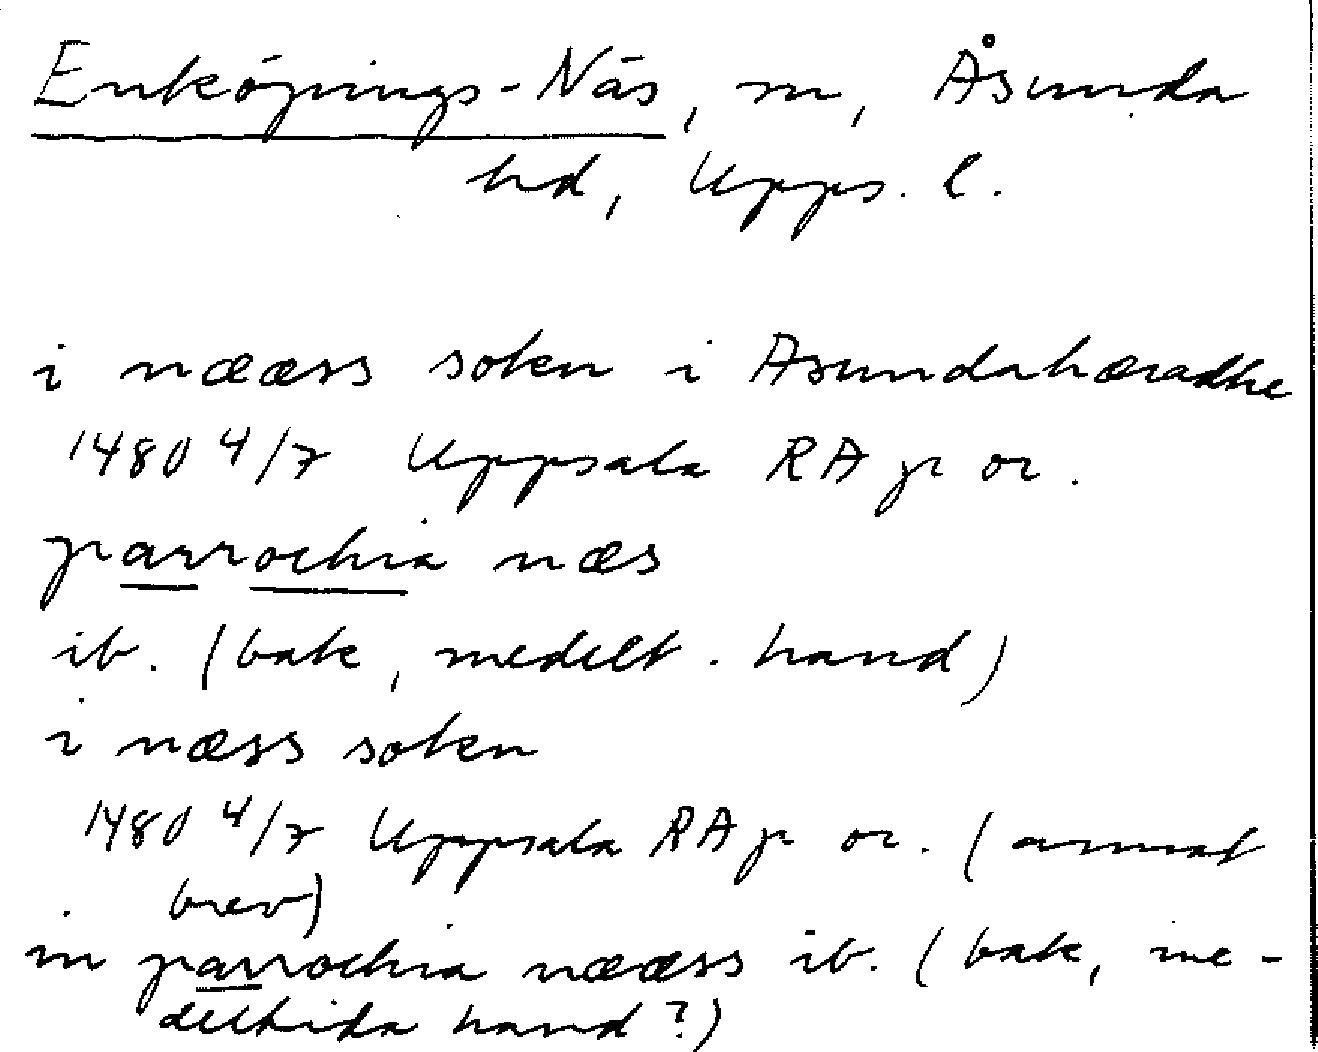 Enköpings-Näs, sn, Åsunda
hd, Upps. l.
i nææss soken i Asundahæradhe
1480 4/7 Uppsala RAp or.
parrochia næs
ib. (bak, medelt. hand)
i næss soken
1480 4/7 Uppsala RAp or. (annat
brev)
in parrochia nææss ib. (bak, me-
deltida hand?)